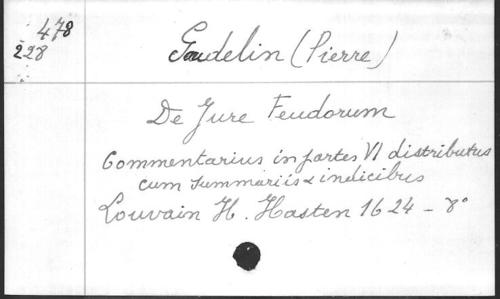 478
228
Goudelin (Pierre)
De Jure Feudorum
Commentarius in partes VI distributus
cum summariis & indicibus
Louvain H. Hasten 1624 - 8°